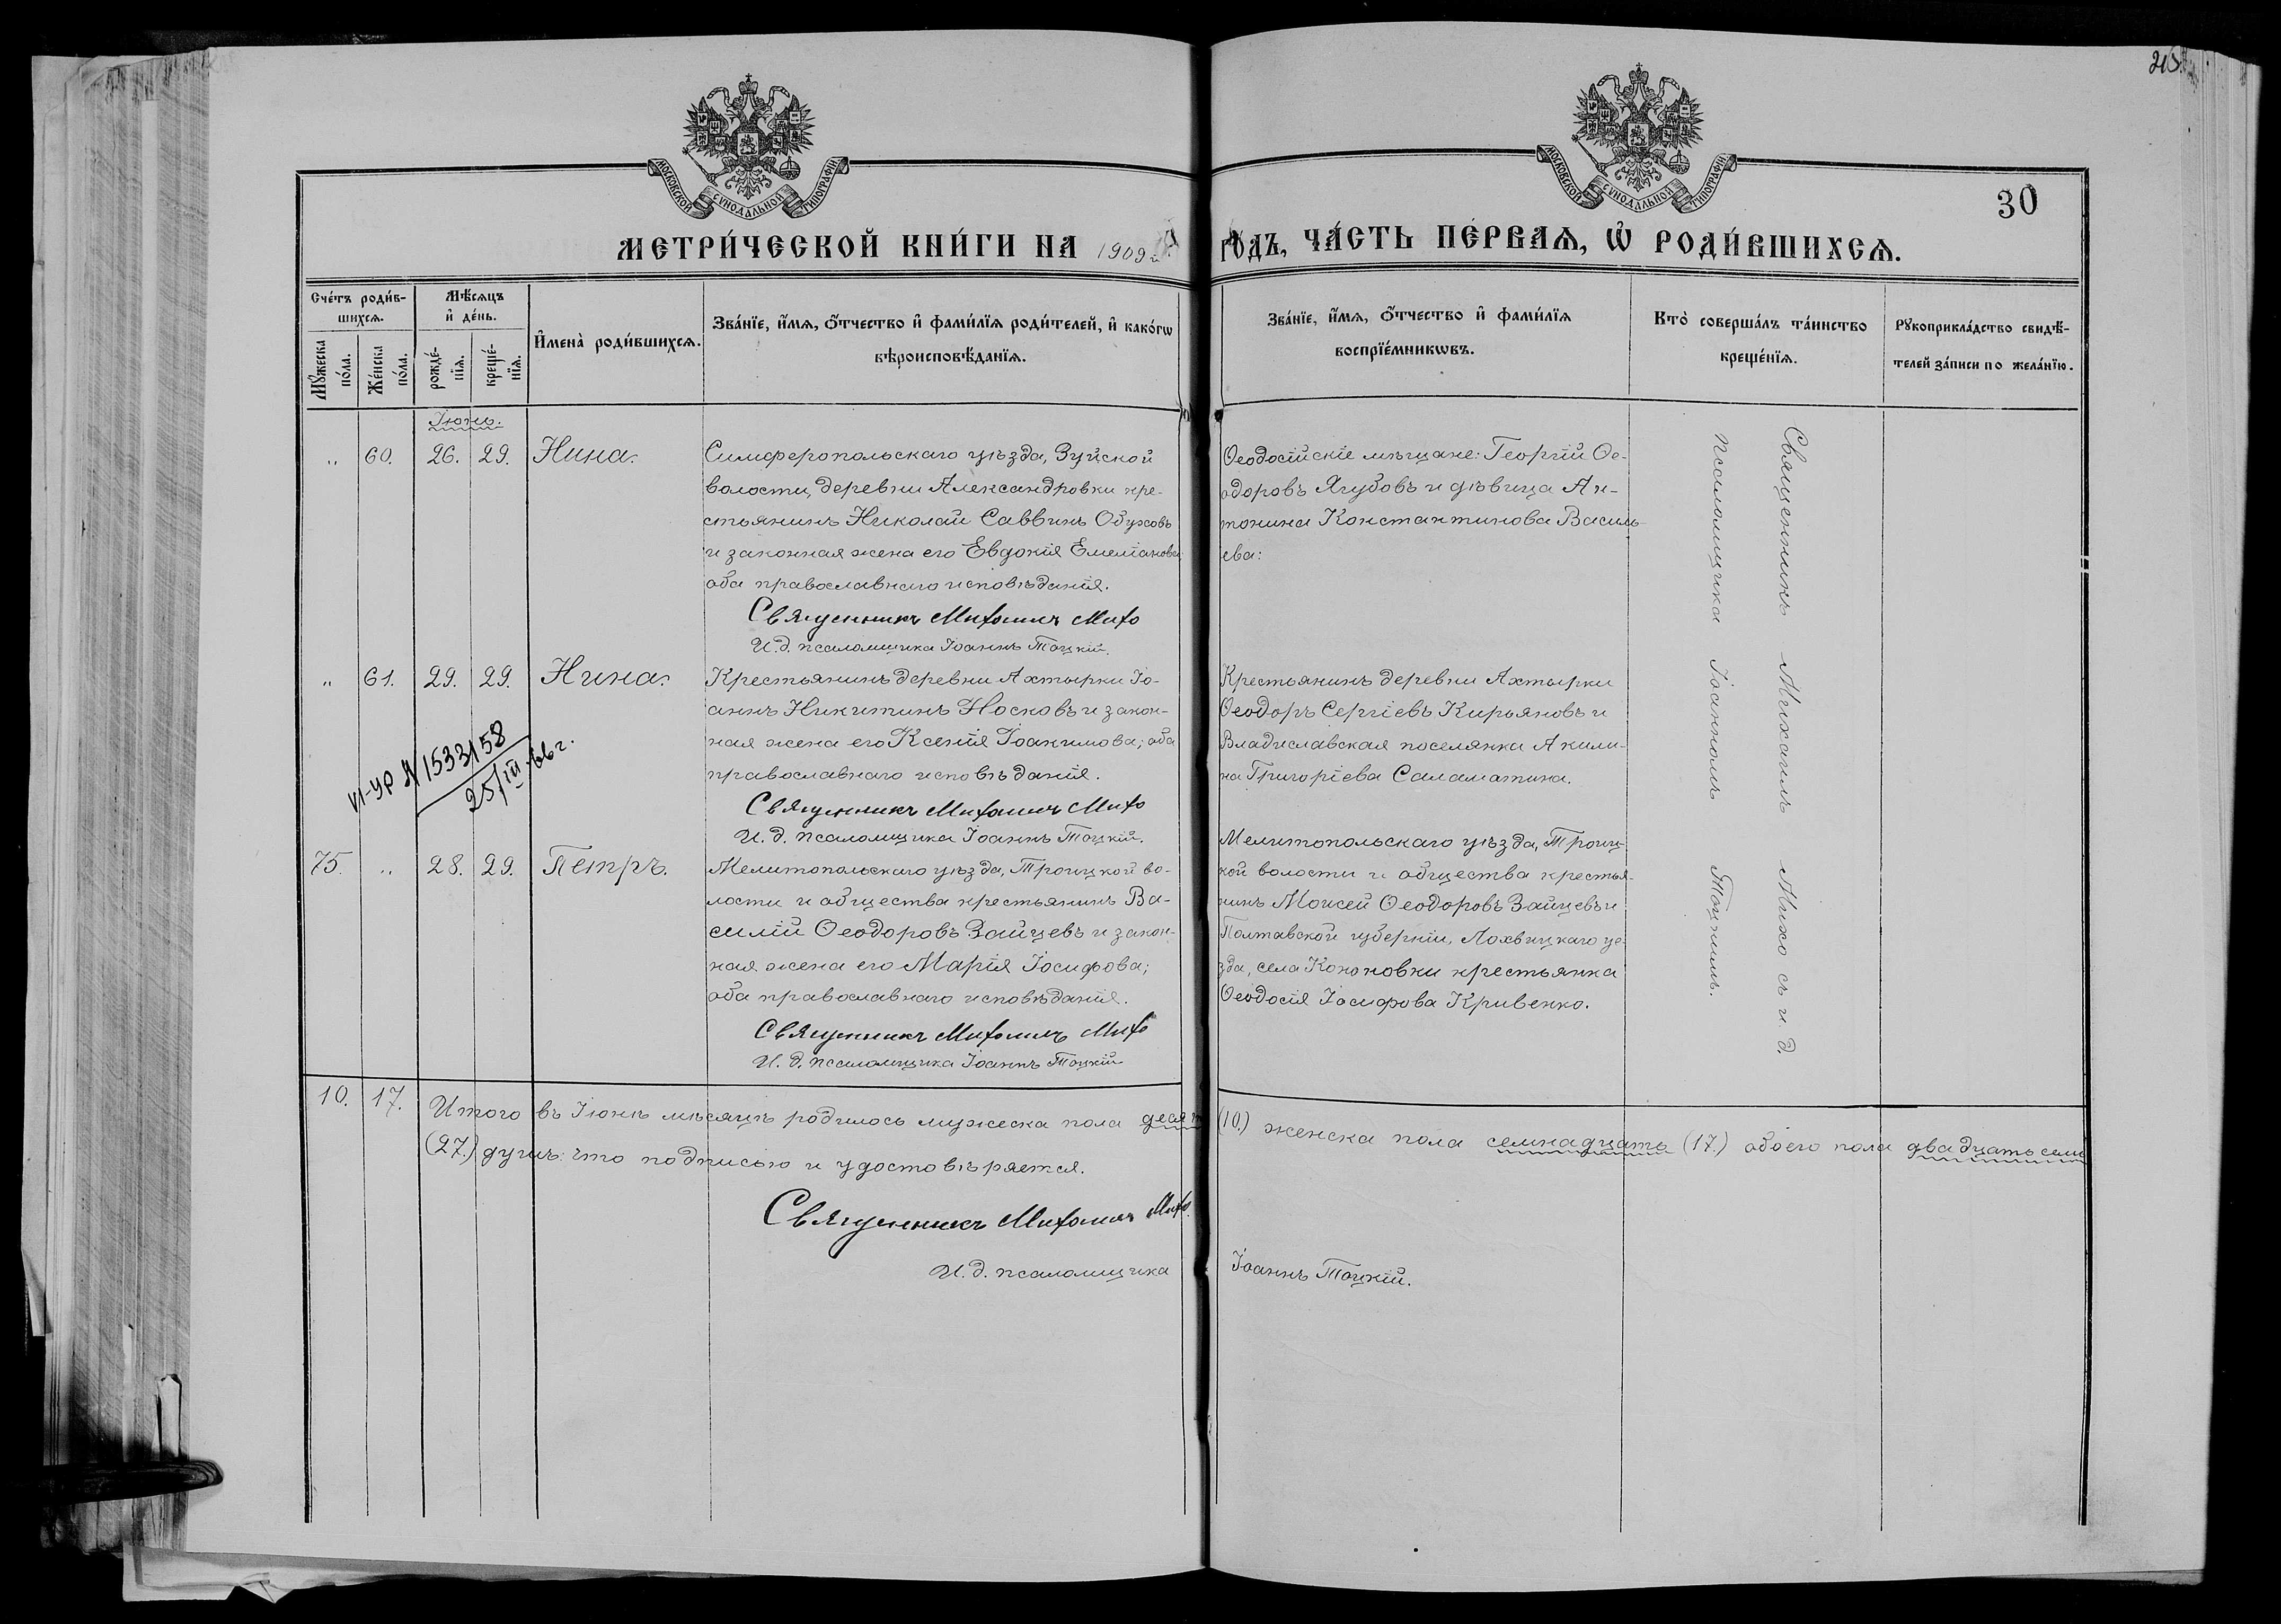 215
МОСКОВСКОЙ СѴНОДАЛЬНОЙ ТИПОГРАФІИ
МОСКОВСКОЙ СѴНОДАЛЬНОЙ ТИПОГРАФІИ
30
МЕТРИ́ЧЕСКОЙ КНИ́ГИ НА 1909 й ГОДЪ, ЧА́СТЬ ПЕ́РВАѦ, Ѡ҆ РОДИ́ВШИХСѦ.
Сче́тъ роди́в-
шихсѧ.
Мꙋжеска по́ла.
Же́нска по́ла.
Мѣ́сѧцъ
и҆ де́нь.
рожде́-
нїѧ.
креще́-
нїѧ.
И҆мена̀ роди́вшихсѧ.
Зва́нїе, и҆́мѧ, ѻ҆́тчество и҆ фами́лїѧ роди́телей, и҆ како́гѡ
вѣроисповѣ́данїѧ.
Зва́нїе, и҆́мѧ, ѻ҆́тчество и҆ фами́лїѧ
воспрїе́мникѡвъ.
Кто̀ соверша́лъ та́инство
креще́нїѧ.
Рꙋкоприкла́дство свидѣ́-
телей за́писи по жела́нїю.
Іюнь.
„ 60. 26. 29. Нина.
Симферопольскаго уѣзда, Зуйской
волости, деревни Александровки кре-
стьянинъ Николай Саввинъ Обуховъ
и законная жена его Евдокія Емеліанова
оба православнаго исповѣданія.
Священникъ Михаилъ Михо
И. д. псаломщика Іоаннъ Тоцкій.
Ѳеодосійскіе мѣщане: Георгій Ѳе-
одоровъ Ягубовъ и дѣвица Ан-
тонина Константинова Василь-
ева:
„ 61. 29. 29. Нина.
Крестьянинъ деревни Ахтырки Іо-
аннъ Никитинъ Носковъ и закон-
ная жена его Ксенія Іоакимова; оба
православнаго исповѣданія.
Священникъ Михаилъ Михо
И. д. псаломщика Іоаннъ Тоцкій.
Крестьянинъ деревни Ахтырки
Ѳеодоръ Сергіевъ Кирьяновъ и
Владиславская поселянка Акили-
на Григоріева Саламатина.
И-УР № 1533158
25/III-66 г.
75. „ 28. 29. Петръ.
Мелитопольскаго уѣзда, Троицкой во-
лости и общества крестьянинъ Ва-
силій Ѳеодоровъ Зайцевъ и закон-
ная жена его Марія Іосифова;
оба православнаго исповѣданія.
Священникъ Михаилъ Михо
И. д. псаломщика Іоаннъ Тоцкій
Мелитопольскаго уѣзда, Троиц-
кой волости и общества крестья-
нинъ Моисей Ѳеодоровъ Зайцевъ и
Полтавской губерніи, Лохвицкаго уѣ-
зда, села Кононовки крестьянка
Ѳеодосія Іосифова Кривенко.
Священникъ Михаилъ Михо съ и. д.
псаломщика Іоанномъ Тоцкимъ.
10. 17. Итого въ Іюнѣ мѣсяцѣ родилось мужеска пола десять (10.) женска пола семнадцать (17.) обоего пола двадцать семь
(27.) душъ: что подписью и удостовѣряется.
Священникъ Михаилъ Михо.
И. д. псаломщика Іоаннъ Тоцкій.